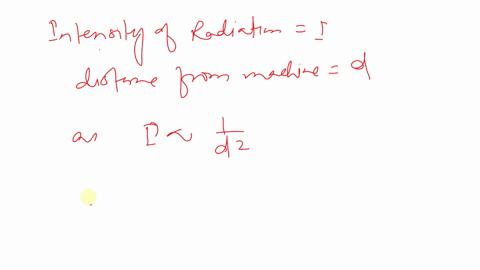 Intensity of Radiation = I
distance from machine = d
as I ∝ 1/d²